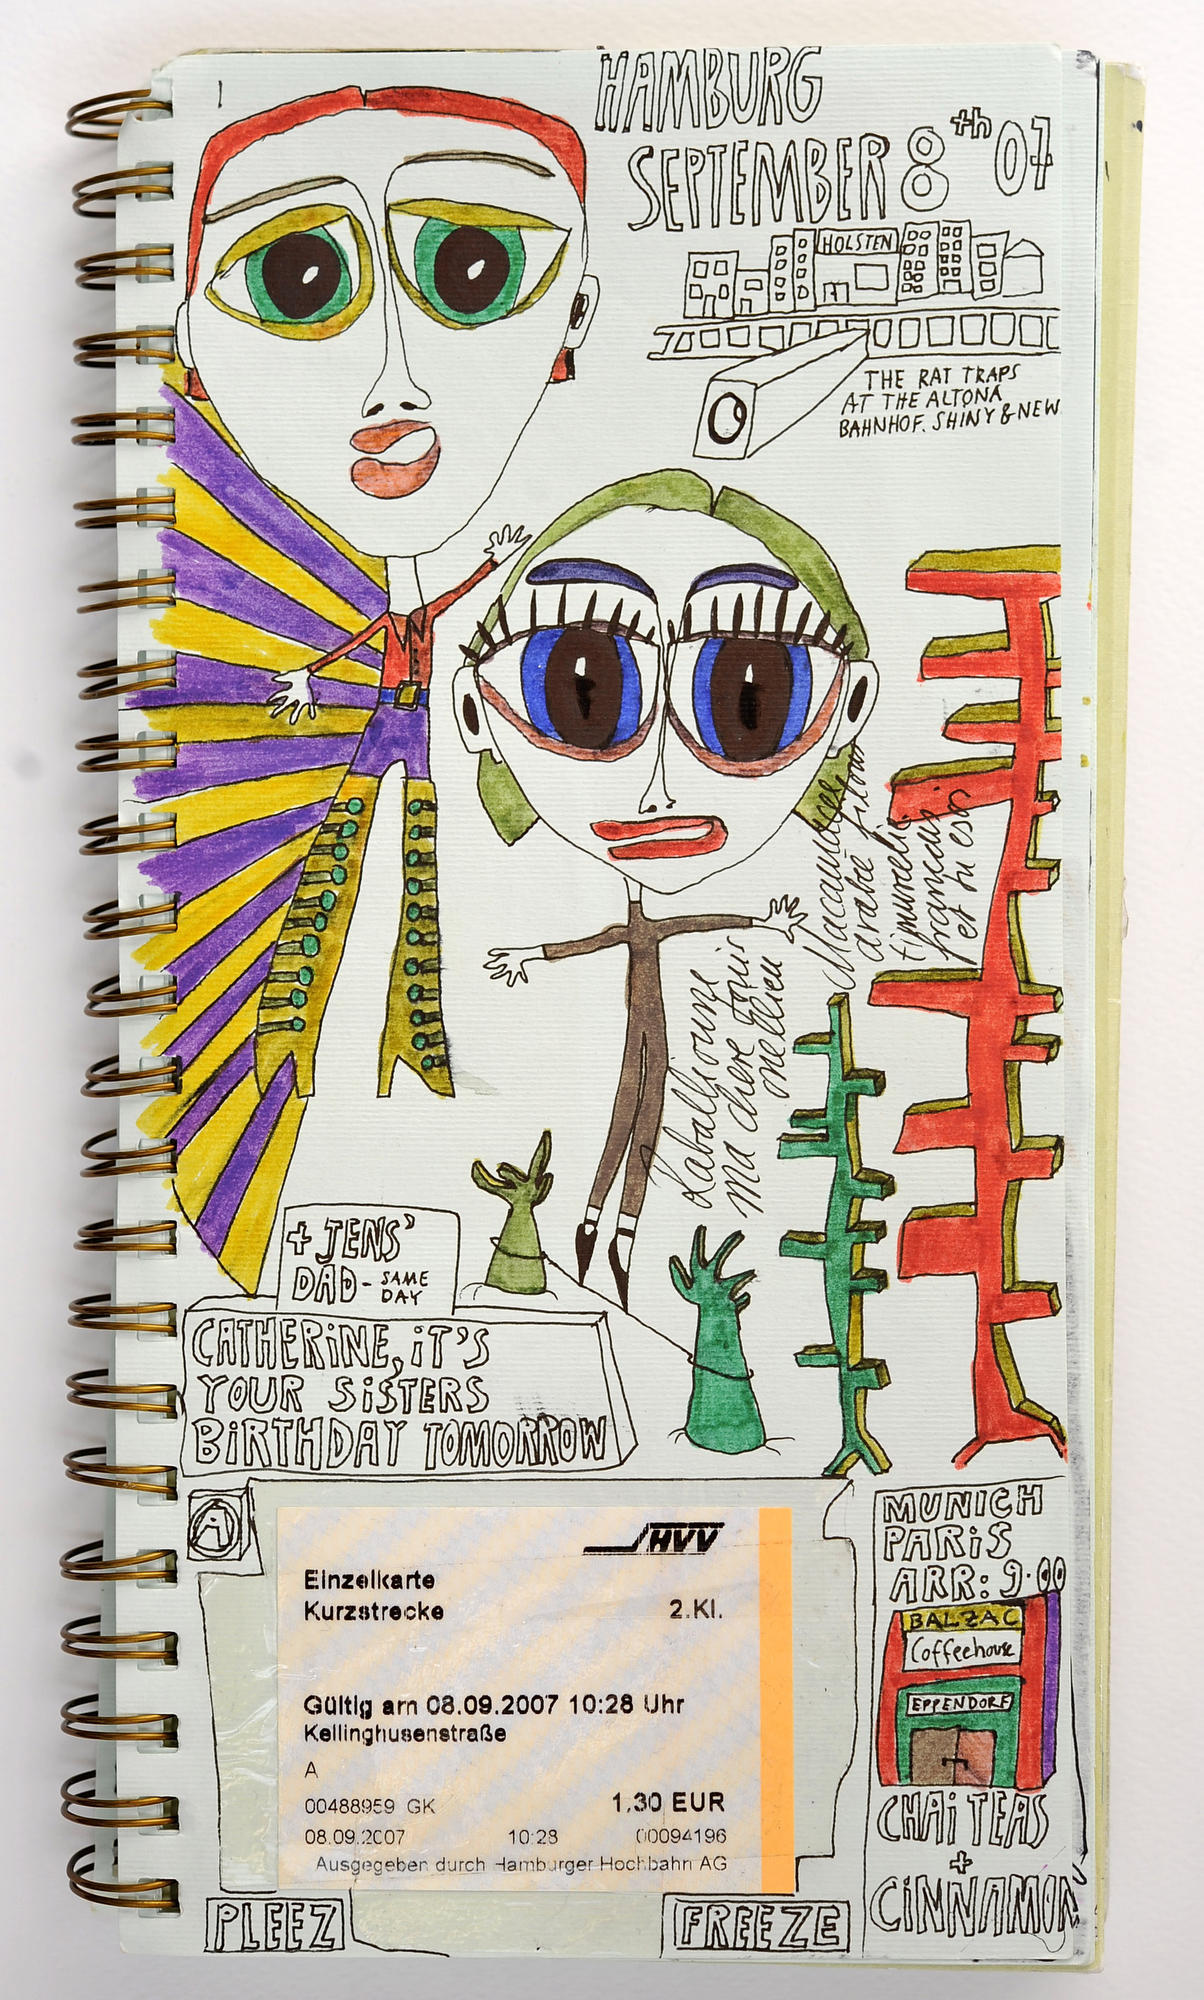 HAMBURG
SEPTEMBER 8th 07
HOLSTEN
THE RAT TRAPS
AT THE ALTONA
BAHNHOF. SHINY & NEW
ma chere
+ JENS'
DAD - SAME
DAY
CATHERINE, iT'S
YOUR SiSTERS
BiRTHDAY TOMORROW
A
HVV
Einzelkarte
Kurzstrecke 2.Kl.
Gültig am 08.09.2007 10:28 Uhr
Kellinghusenstraße
A
00488959 GK 1,30 EUR
08.09.2007 10:28 00094196
Ausgegeben durch Hamburger Hochbahn AG
PLEEZ
FREEZE
MUNICH
PARiS
ARR: 9.00
BALZAC
Coffeehouse
EPPENDORF
CHAi TEAS
+
CiNNAMON